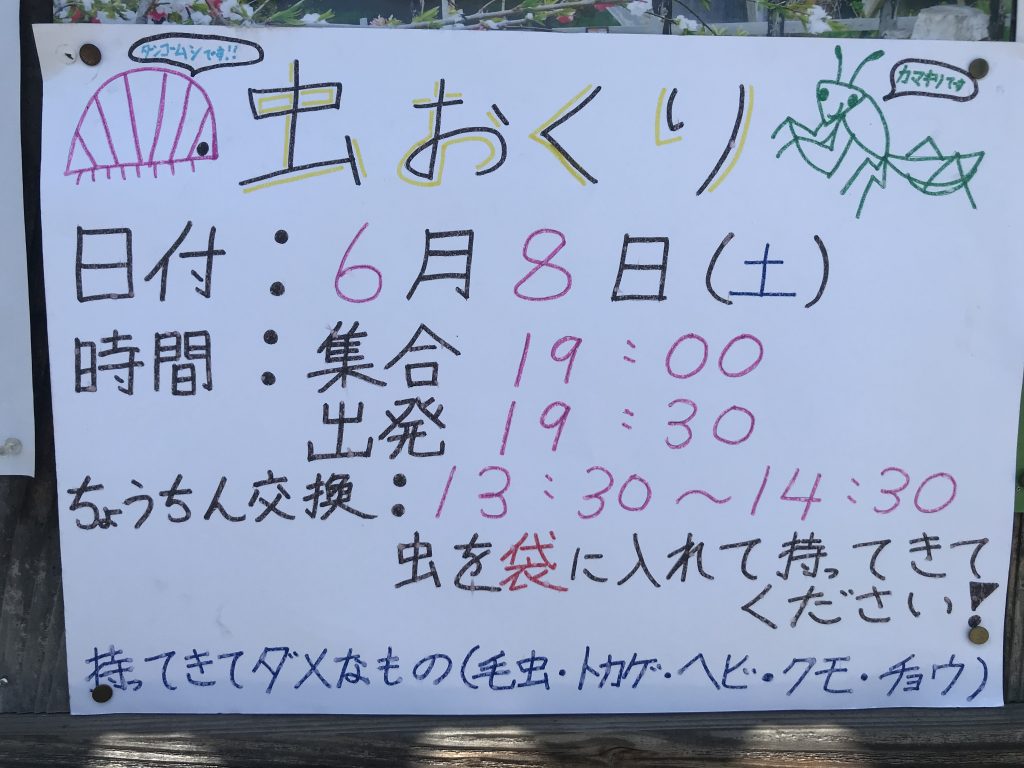 ダンゴームシです!!
虫おくり
カマキリです
日付：6月8日(土)
時間：集合 19:00
出発 19:30
ちょうちん交換：13:30〜14:30
虫を袋に入れて持ってきて
ください!
持ってきてダメなもの(毛虫・トカゲ・ヘビ・クモ・チョウ)